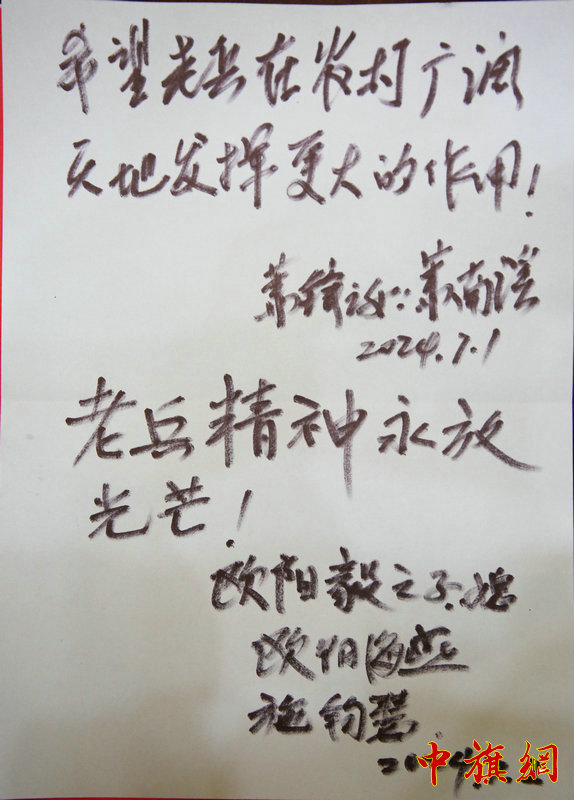 希望老兵在农村广阔
天地发挥更大的作用！
萧锋之女：萧南溪
2024.7.1
老兵精神永放
光芒！
欧阳毅之子、媳
欧阳海燕
施钧
中旗網